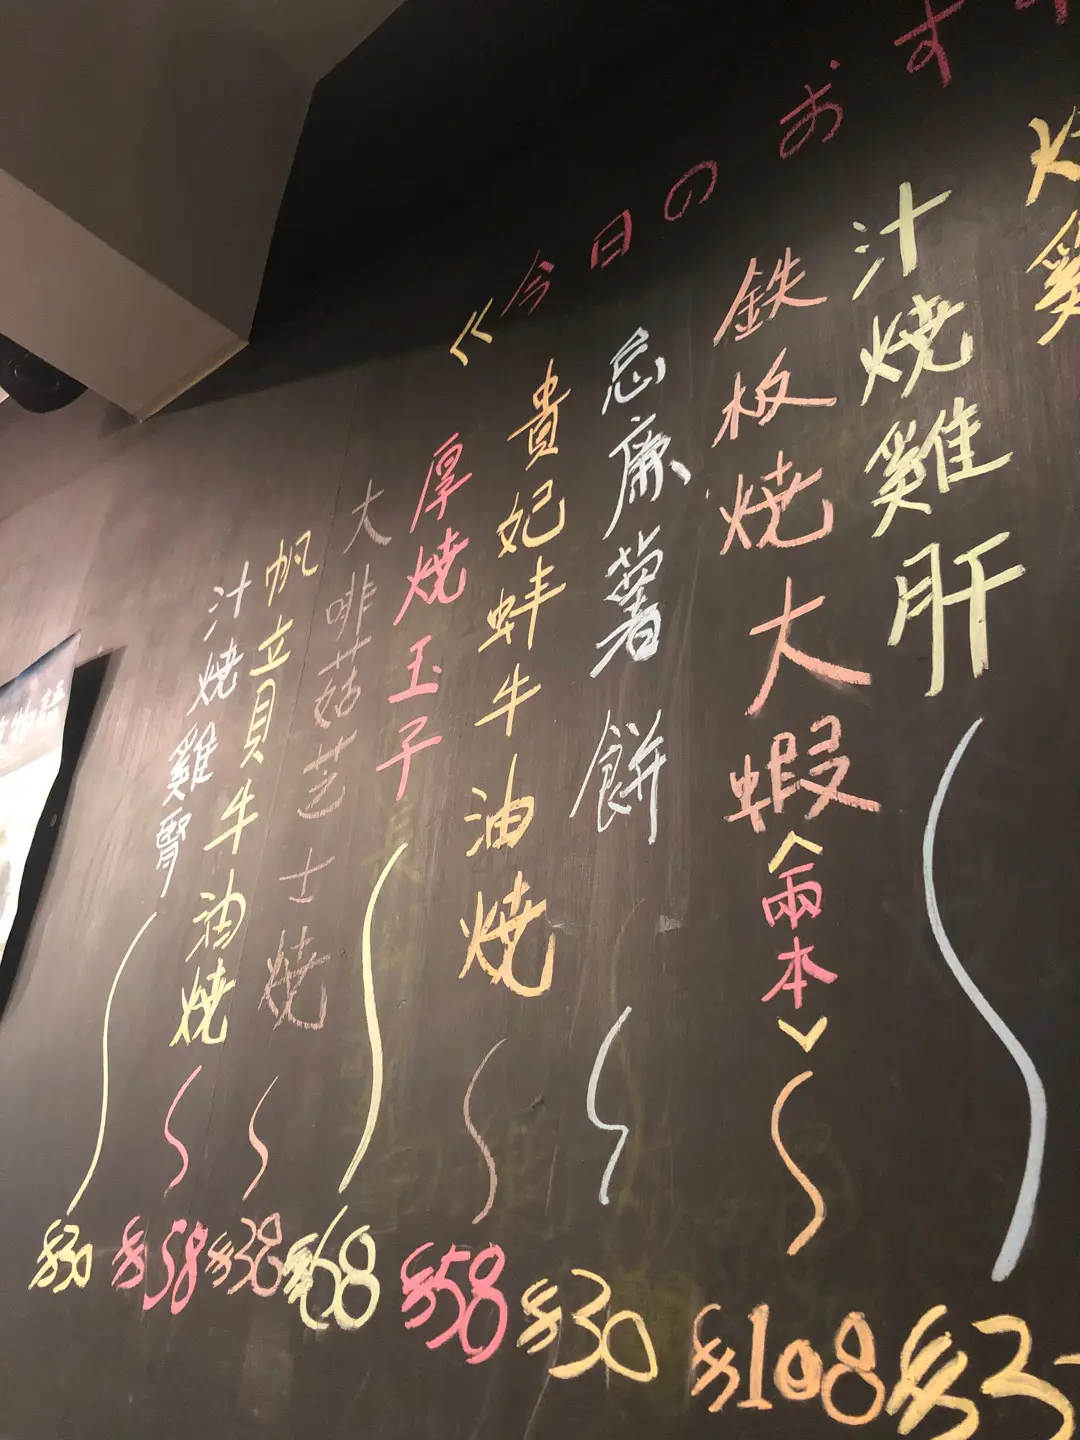 今日のおす
汁燒雞肝
鉄板燒大蝦
<兩本>
$108
忌廉薯餅
$30
貴妃蚌牛油燒
$58
厚燒玉子
$68
大啡菇芝士燒
$38
帆立貝牛油燒
$58
汁燒雞腎
$30